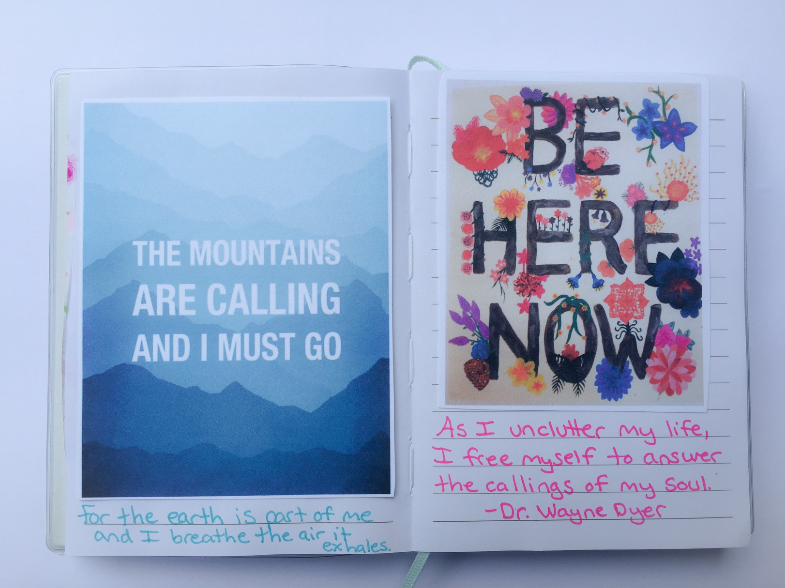 THE MOUNTAINS
ARE CALLING
AND I MUST GO
for the earth is part of me
and I breathe the air it
exhales.
BE
HERE
NOW
As I unclutter my life,
I free myself to answer
the callings of my soul.
-Dr. Wayne Dyer